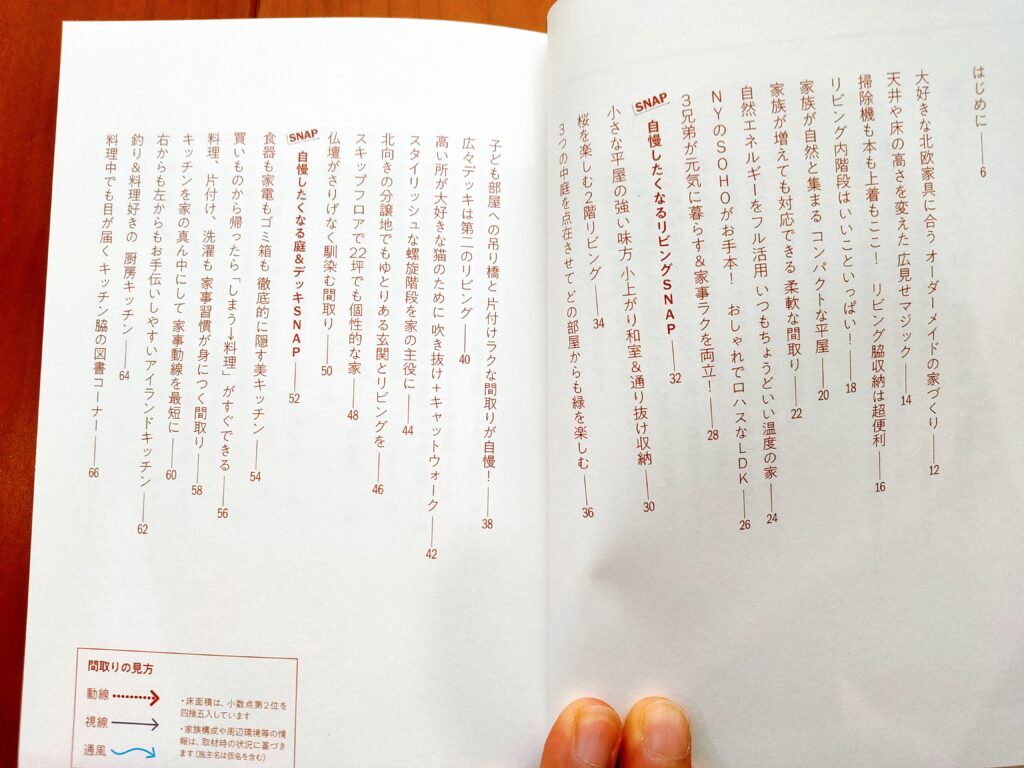 はじめに 6
大好きな北欧家具に合う オーダーメイドの家づくり 12
天井や床の高さを変えた 広見せマジック 14
掃除機も本も上着もここ! リビング脇収納は超便利 16
リビング内階段はいいこといっぱい! 18
家族が自然と集まる コンパクトな平屋 20
家族が増えても対応できる 柔軟な間取り 22
自然エネルギーをフル活用 いつもちょうどいい温度の家 24
NYのSOHOがお手本! おしゃれでロハスなLDK 26
3兄弟が元気に暮らす&家事ラクを両立! 28
SNAP 自慢したくなるリビングSNAP 32
小さな平屋の強い味方 小上がり和室&通り抜け収納 30
桜を楽しむ2階リビング 34
3つの中庭を点在させて どの部屋からも緑を楽しむ 36
子ども部屋への吊り橋と 片付けラクな間取りが自慢! 38
広々デッキは第二のリビング 40
高い所が大好きな猫のために 吹き抜け+キャットウォーク 42
スタイリッシュな螺旋階段を家の主役に 44
北向きの分譲地でもゆとりある玄関とリビングを 46
スキップフロアで22坪でも個性的な家 48
仏壇がさりげなく馴染む間取り 50
SNAP 自慢したくなる庭&デッキSNAP 52
食器も家電もゴミ箱も 徹底的に隠す美キッチン 54
買いものから帰ったら「しまう→料理」がすぐできる 56
料理、片付け、洗濯も 家事習慣が身につく間取り 58
キッチンを家の真ん中にして 家事動線を最短に 60
右からも左からもお手伝いしやすいアイランドキッチン 62
釣り&料理好きの 厨房キッチン 64
料理中でも目が届く キッチン脇の図書コーナー 66
間取りの見方
動線
視線
通風
・床面積は、小数点第2位を
四捨五入しています
・家族構成や周辺環境等の情
報は、取材時の状況に基づき
ます(施主名は仮名を含む)